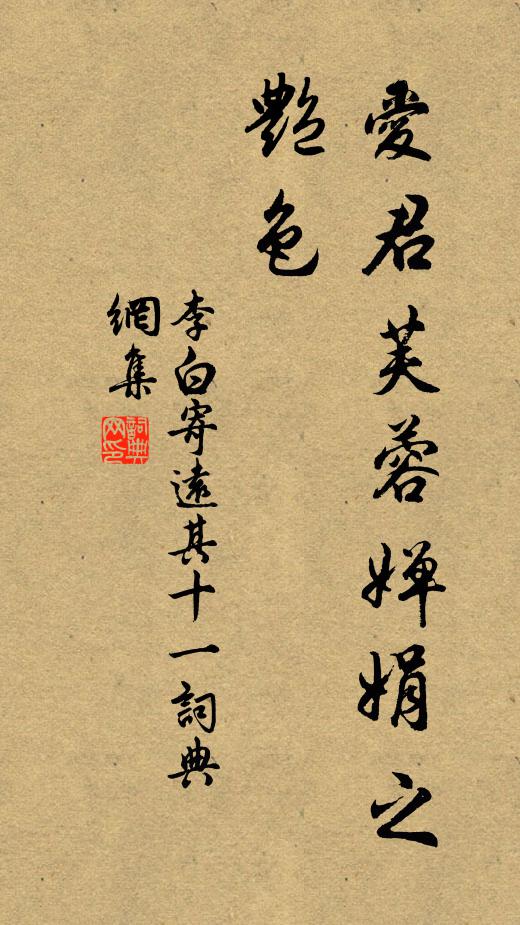 愛君芙蓉嬋娟之
艷色
李白寄遠其十一詞典
網集
詞典
网印